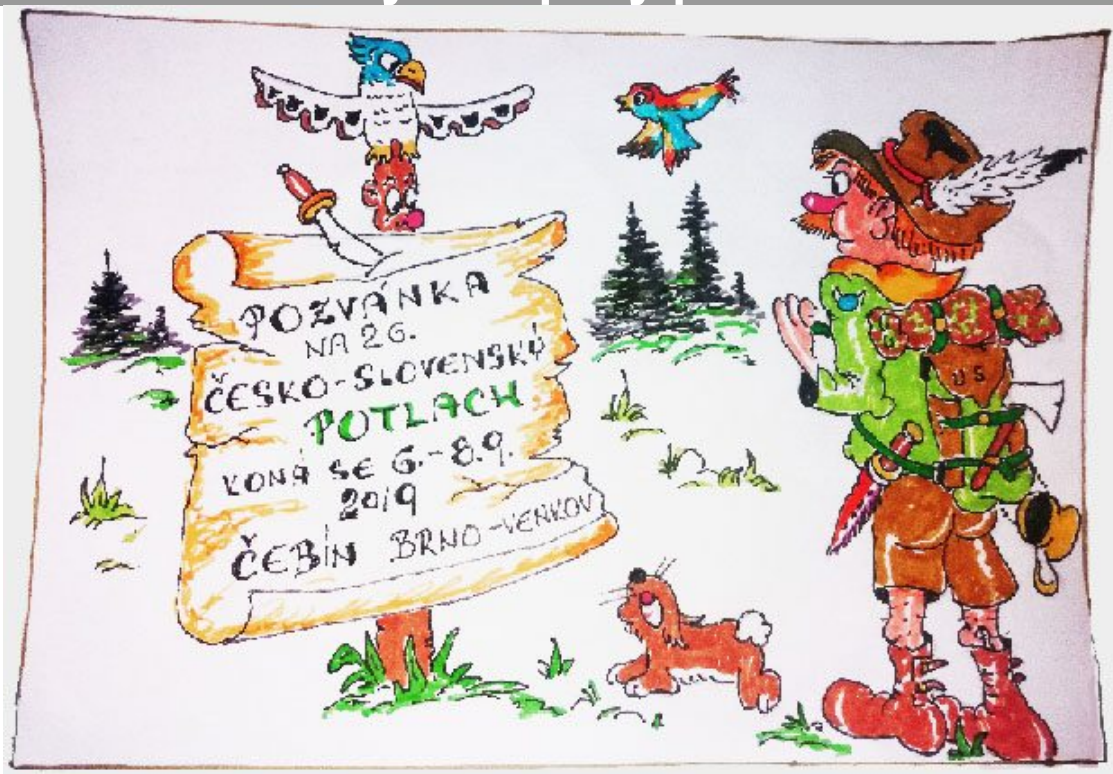 POZVÁNKA
NA 26.
ČESKO-SLOVENSKÝ
POTLACH
KONÁ SE 6.-8.9.
2019
ČEBÍN BRNO-VENKOV
US